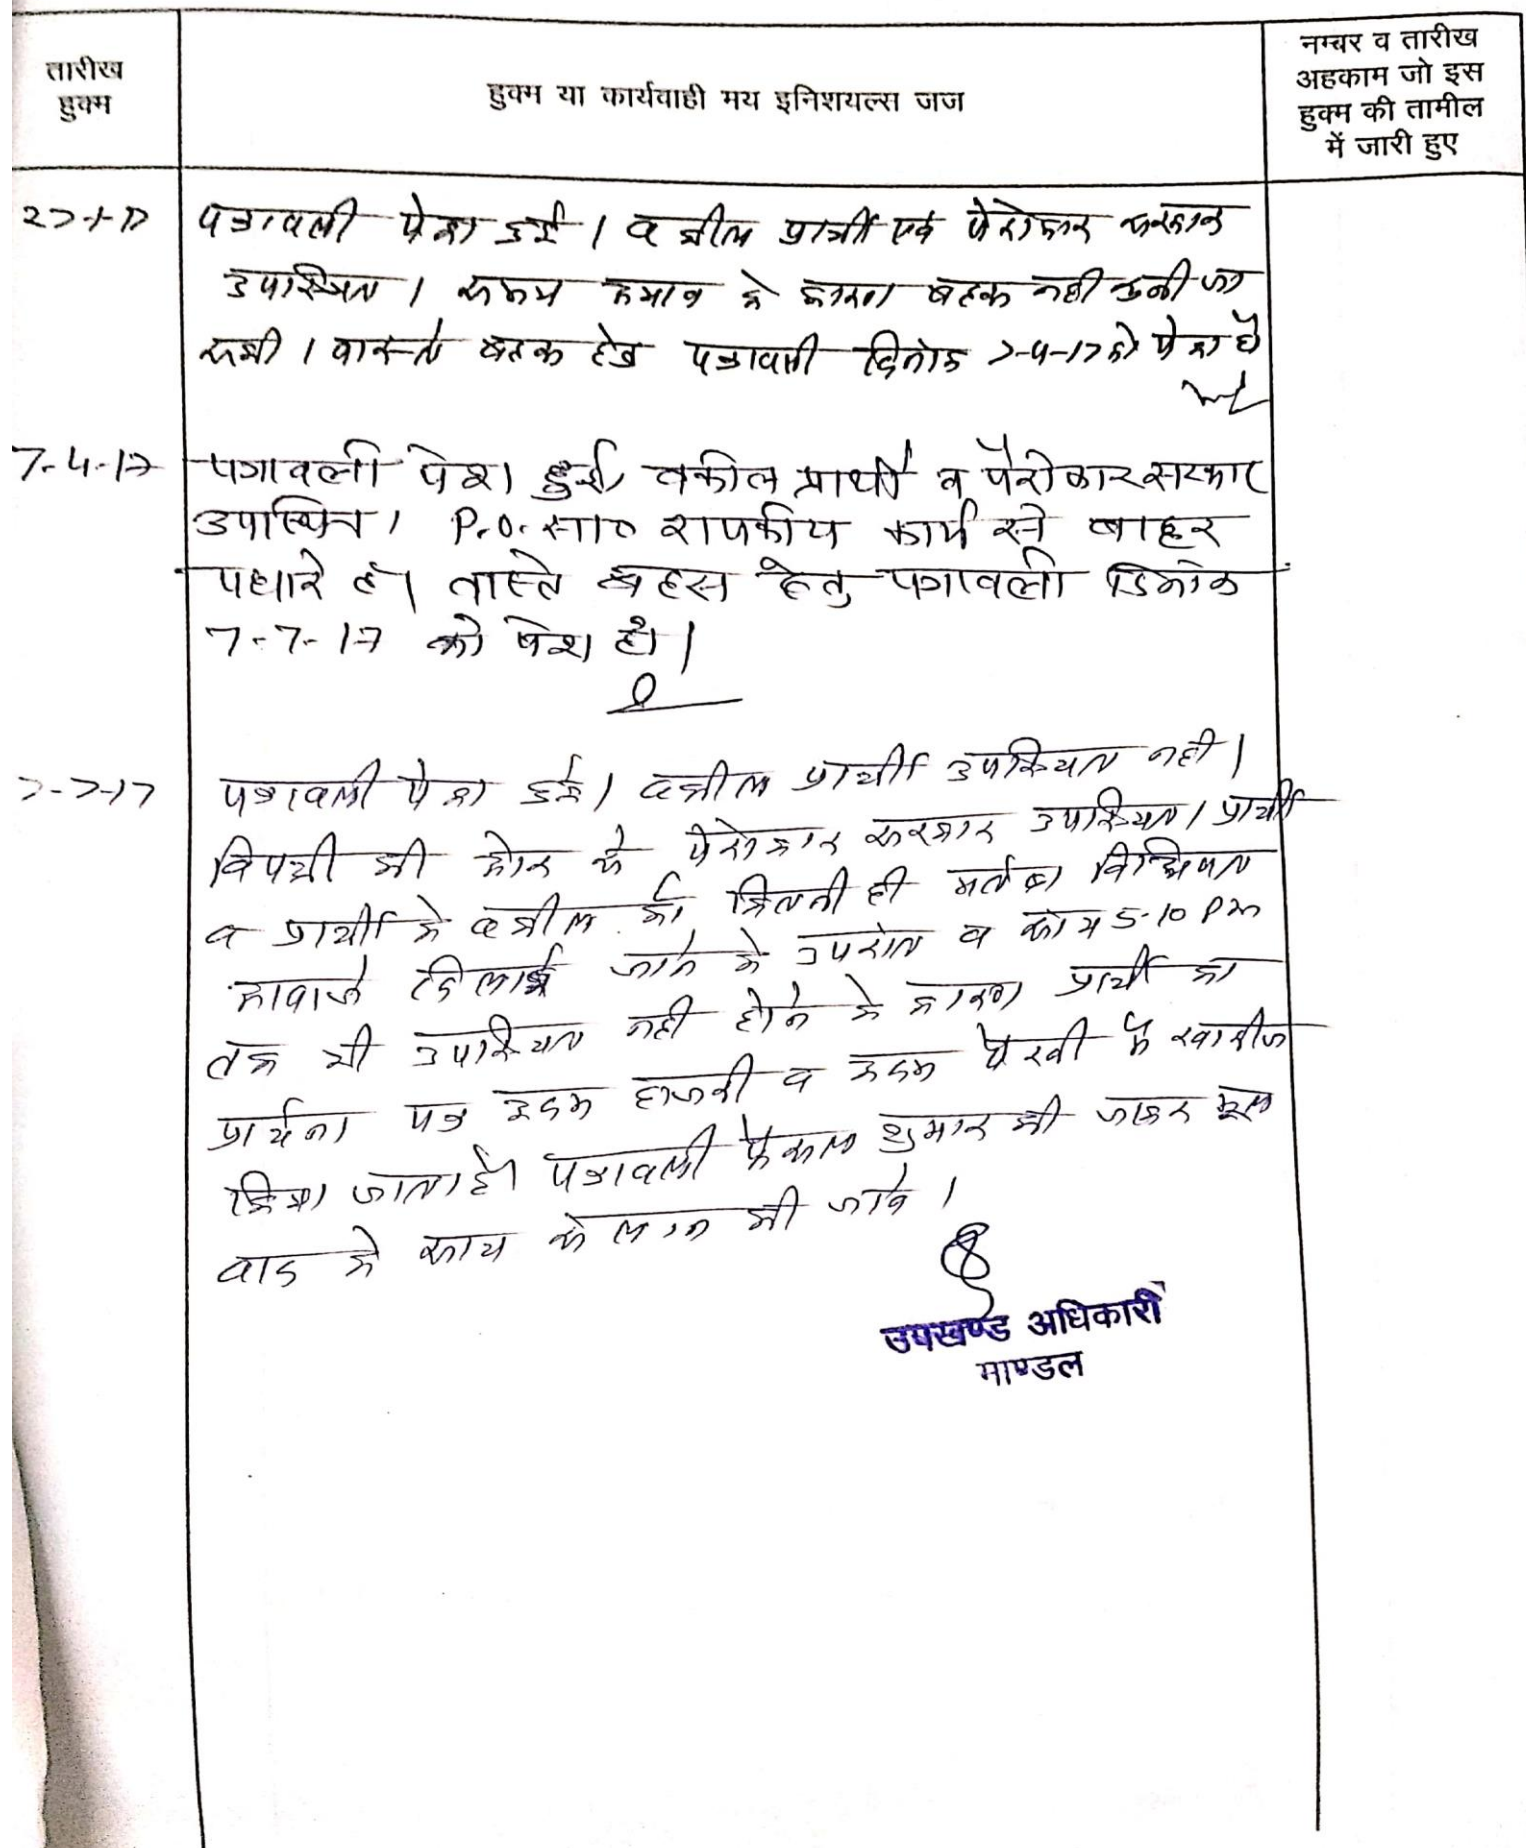 तारीख
हुक्म
हुक्म या कार्यवाही मय इनिशयल्स जज
नम्बर व तारीख
अहकाम जो इस
हुक्म की तामील
में जारी हुए
27-1-17 पत्रावली पेश हुई। वकील प्रार्थी एवं पेरोकार सरकार
उपस्थित। समय अभाव के कारण बहस नही सुनी जा
सकी। वास्ते बहस हेतु पत्रावली दिनांक 7-4-17 को पेश हो
7-4-17 पत्रावली पेश हुई, वकील प्रार्थी व पैरोकार सरकार
उपस्थित। P.O. सा० राजकीय कार्य से बाहर
पधारे है। वास्ते बहस हेतु पत्रावली दिनांक
7-7-17 को पेश हो।
7-7-17 पत्रावली पेश हुई। वकील प्रार्थी उपस्थित नही।
विपक्षी की ओर से पेरोकार सरकार उपस्थित। प्रार्थी
व प्रार्थी के वकील को कितनी ही मर्तबा
आवाजे दिलाई जाने के उपरांत व सांय 5-10 PM
तक भी उपस्थित नही होने के कारण प्रार्थी का
प्रार्थना पत्र अदम हाजरी व अदम पेरवी मे खारीज
किया जाता है। पत्रावली फैसल शुमार की जाकर मूल
वाद के साथ संलग्न की जावे।
उपखण्ड अधिकारी
माण्डल